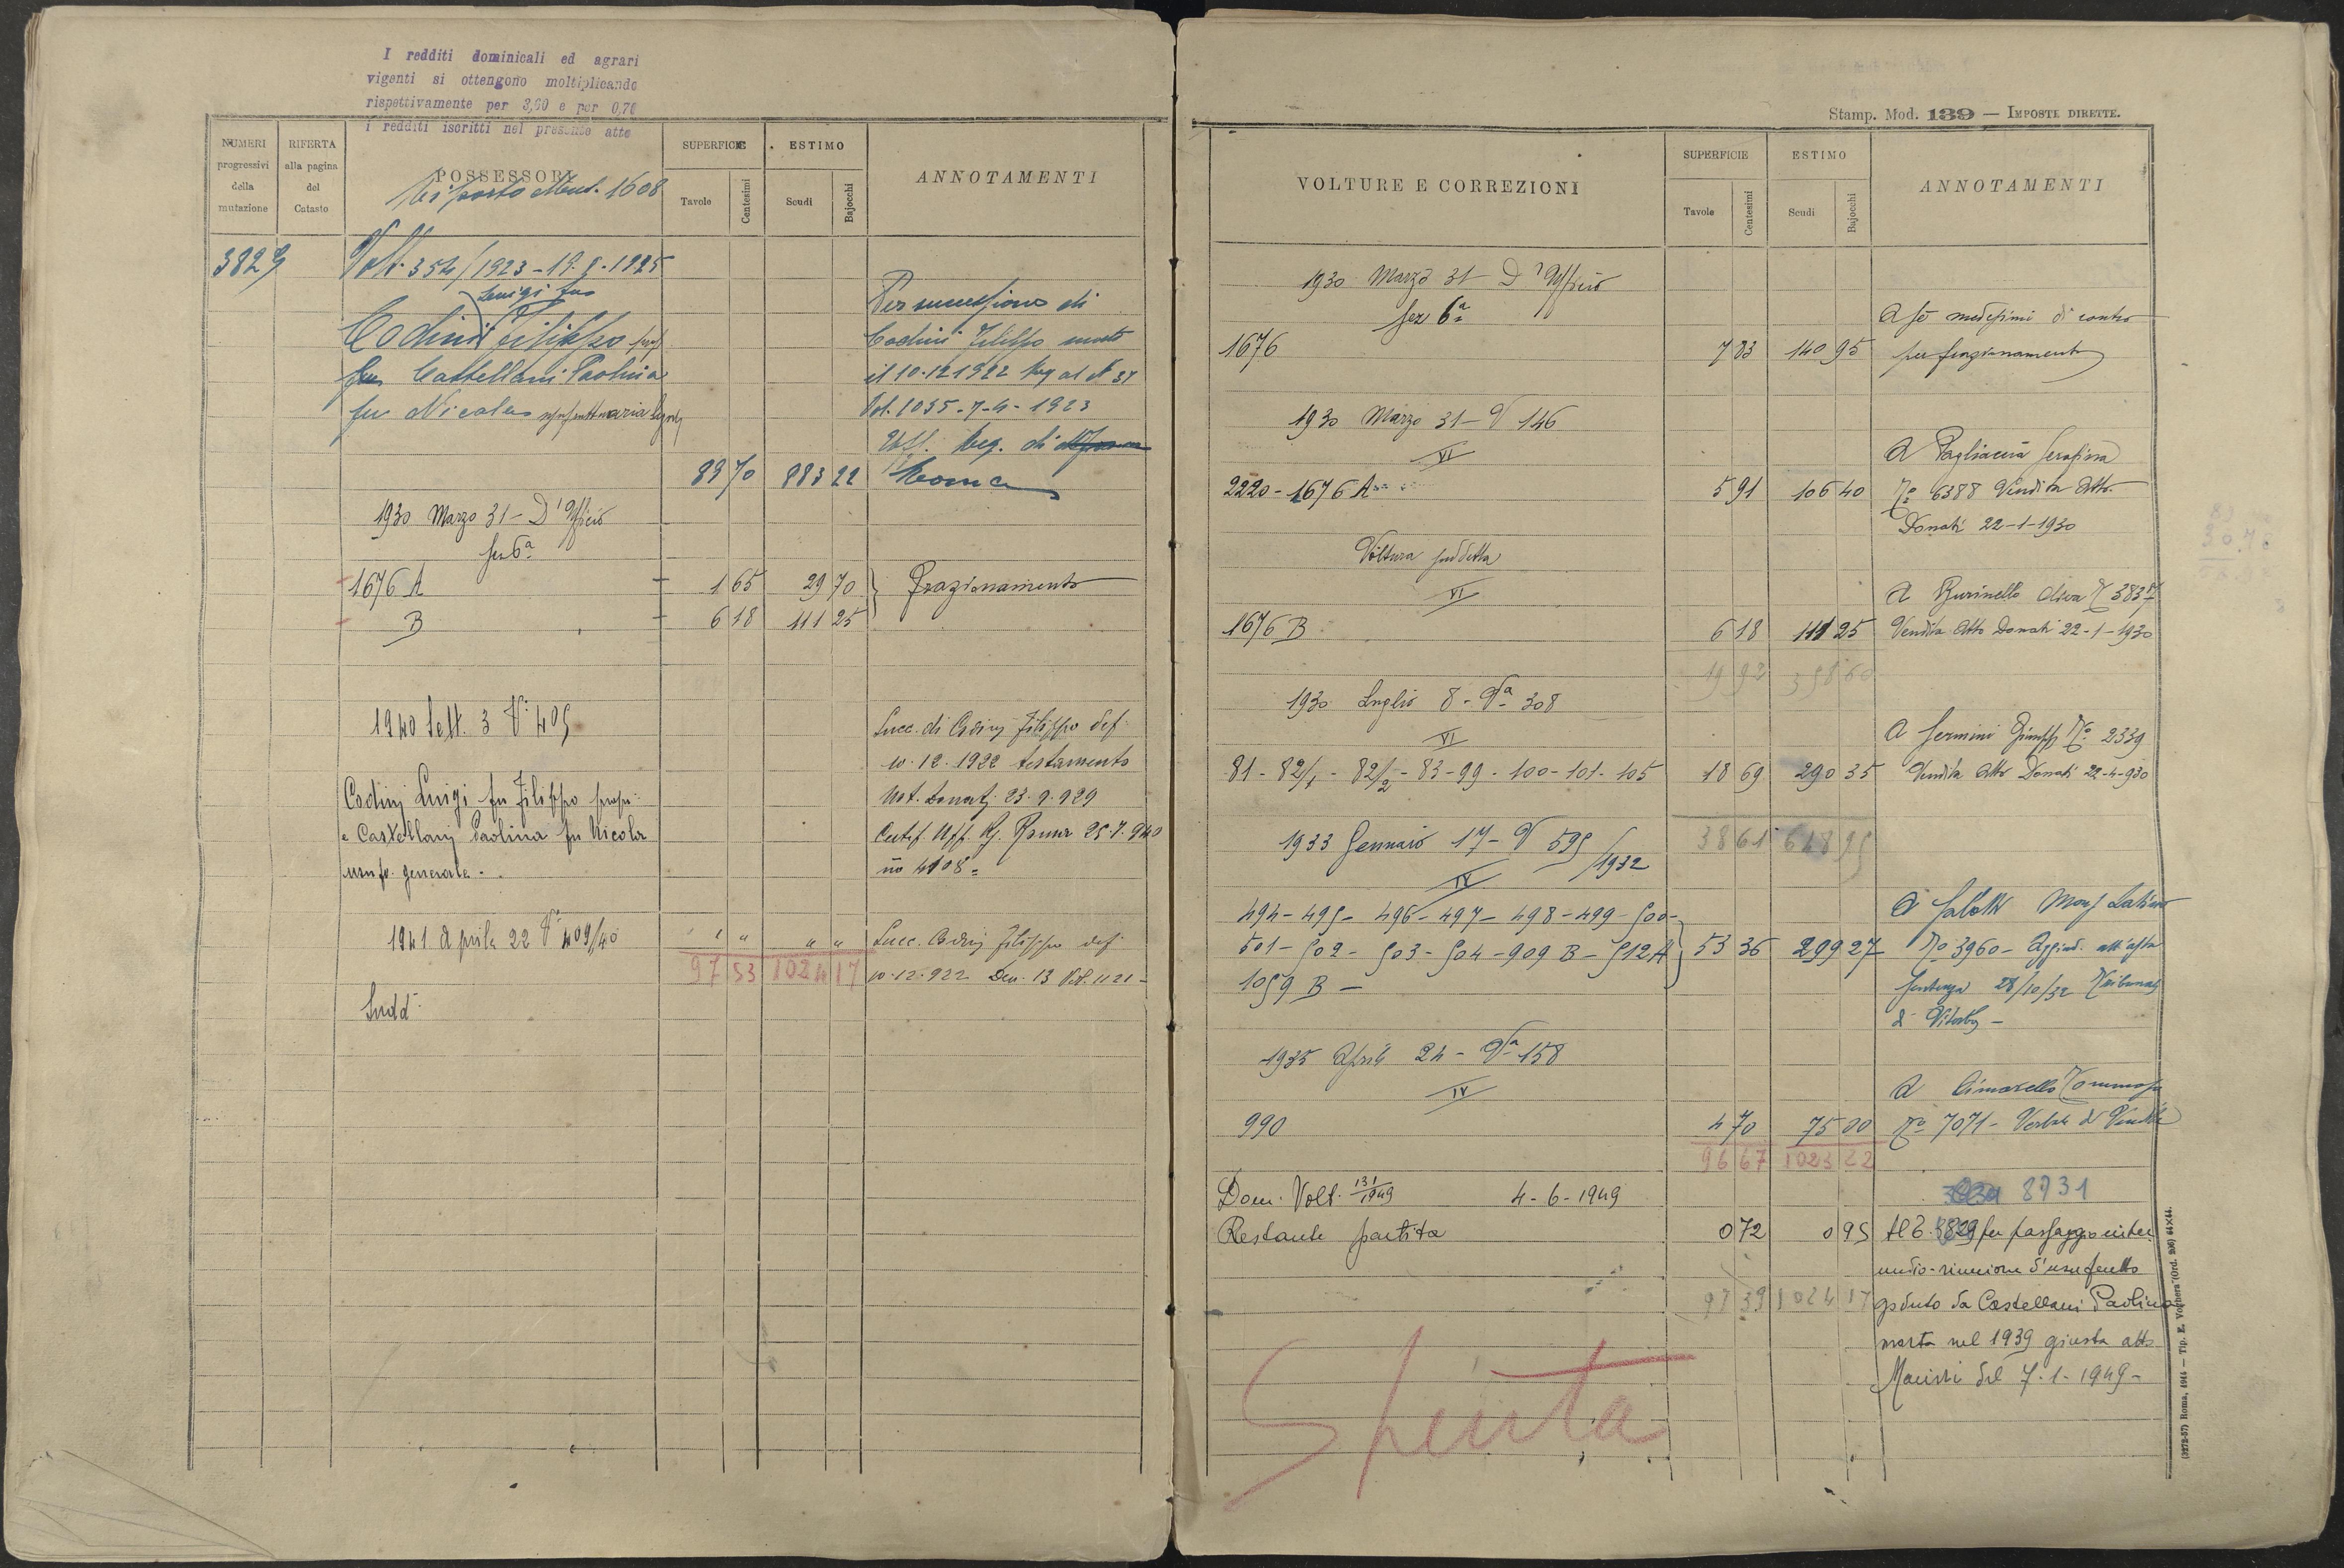 I redditi dominicali ed agrari
vigenti si ottengono moltiplicando
rispettivamente per 3,60 e per 0,70
i redditi iscritti nel presente atto
NUMERI progressivi della mutazione
RIFERTA alla pagina del Catasto
POSSESSORI
Riporto Mut. 1608
SUPERFICIE
Tavole Centesimi
ESTIMO
Scudi Bajocchi
ANNOTAMENTI
3829 Volt. 354/1923 - 19. 8. 1925
Luigi fu
Codini Filippo prop
Castellani Paolina
fu Nicola usufruttuaria
Per successione di
Codini Filippo morto
il 10-12 1922 Reg al N 37
Vol. 1035 - 7-4-1923
Uff. Reg. di
Roma
89 70 883 22
1930 Marzo 31 - D'Ufficio
Sez 6ª
1676 A 1 65 29 70 Frazionamento
B 6 18 111 25
1940 Sett. 3 Vª 405
Codini Luigi fu Filippo propr.
e Castellani Paolina fu Nicola
usufr. generale.
Succ. di Codini Filippo def.
10.12.1922 testamento
Not. Donati 23.9.929
Certif. Uff. Rg. Roma 25.7.940
no 4108 =
1941 Aprile 22 Vª 409/40 " " " " Succ. Codini Filippo def.
97 53 1024 17 10.12.922 Den. 13 Vol. 1121 -
Sudd.
Stamp. Mod. 139 — IMPOSTE DIRETTE.
VOLTURE E CORREZIONI
SUPERFICIE
Tavole Centesimi
ESTIMO
Scudi Bajocchi
ANNOTAMENTI
1930 Marzo 31 - D'Ufficio
Sez 6ª
A se medesimi di contro
1676 7 83 140 95 per frazionamento
1930 Marzo 31 - V 146
VI
A Pagliaccia Serafina
2220 - 1676 A 5 91 106 40 Nº 6388 Vendita Atto
Donati 22-1-1930
Voltura suddetta
VI
A Burinello
1676 B 6 18 111 25 Vendita Atto Donati 22-1-1930
19 92 358 60
1930 Luglio 8 - Vª 308
VI
A Sermini Nº 2339
81 - 82/1 - 82/2 - 83 - 99 - 100 - 101 - 105 18 69 290 35 Vendita Atto Donati 22-4-930
38 61 648 95
1933 Gennaio 17 - V 595/1932
IV
494 - 495 - 496 - 497 - 498 - 499 - 500 -
501 - 502 - 503 - 504 - 909 B - 512 A 53 36 299 27 Nº 3960 - Aggiud. all'asta
1059 B -
Sentenza 28/10/32 Tribunale
di Viterbo -
1935 Aprile 24 - Vª 158
IV
A Cimarello Tommaso
990 4 70 75 00 Nº 7071 - Verbale di Vendita
96 67 1023 22
Dom. Volt. 131/1949 4-6-1949
8931
Restante partita 0 72 0 95 Al C. 3829 per passaggio inter
medio - riunione d'usufrutto
97 39 1024 17 goduto da Castellani Paolina
morta nel 1939 giusta atto
del 7.1.1949 -
Spenta
(3272-57) Roma, 1914 — Tip. E. Voghera (Ord. 206) 64×44.